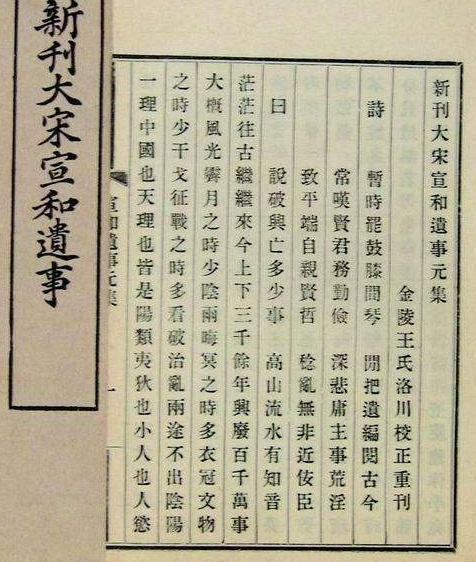 新刊大宋宣和遺事
新刊大宋宣和遺事元集
金陵王氏洛川校正重刊
詩 暫時罷鼓膝間琴 閒把遺編閱古今
常嘆賢君務勤儉 深悲庸主事荒淫
致平端自親賢哲 稔亂無非近佞臣
曰 說破興亡多少事 高山流水有知音
茫茫往古繼繼來今上下三千餘年興廢百千萬事
大槪風光霽月之時少陰雨晦冥之時多衣冠文物
之時少干戈征戰之時多看破治亂兩途不出陰陽
一理中國也天理也皆是陽類夷狄也小人也人慾
宣和遺事元集
一